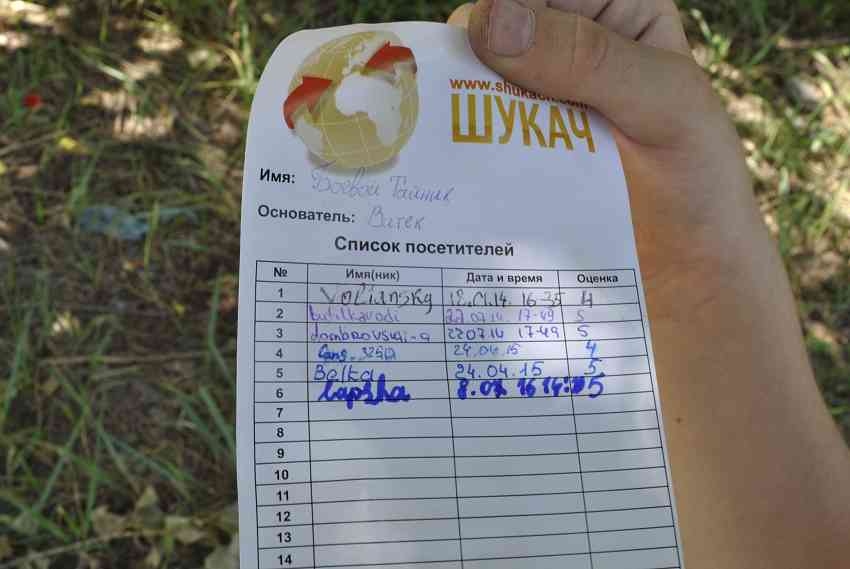 www.shukach.com
ШУКАЧ
Имя: Боевой Тайник
Основатель: Витек
Список посетителей
№ Имя(ник) Дата и время Оценка
1 Volianska 16-35 4
2 butilkavodi 22 07 14 17-49 5
3 dombrovski-a 22 07 14 17-49 5
4 24.04.15 4
5 Belka 24.04.15 5
6 Lapsha 5
7
8
9
10
11
12
13
14